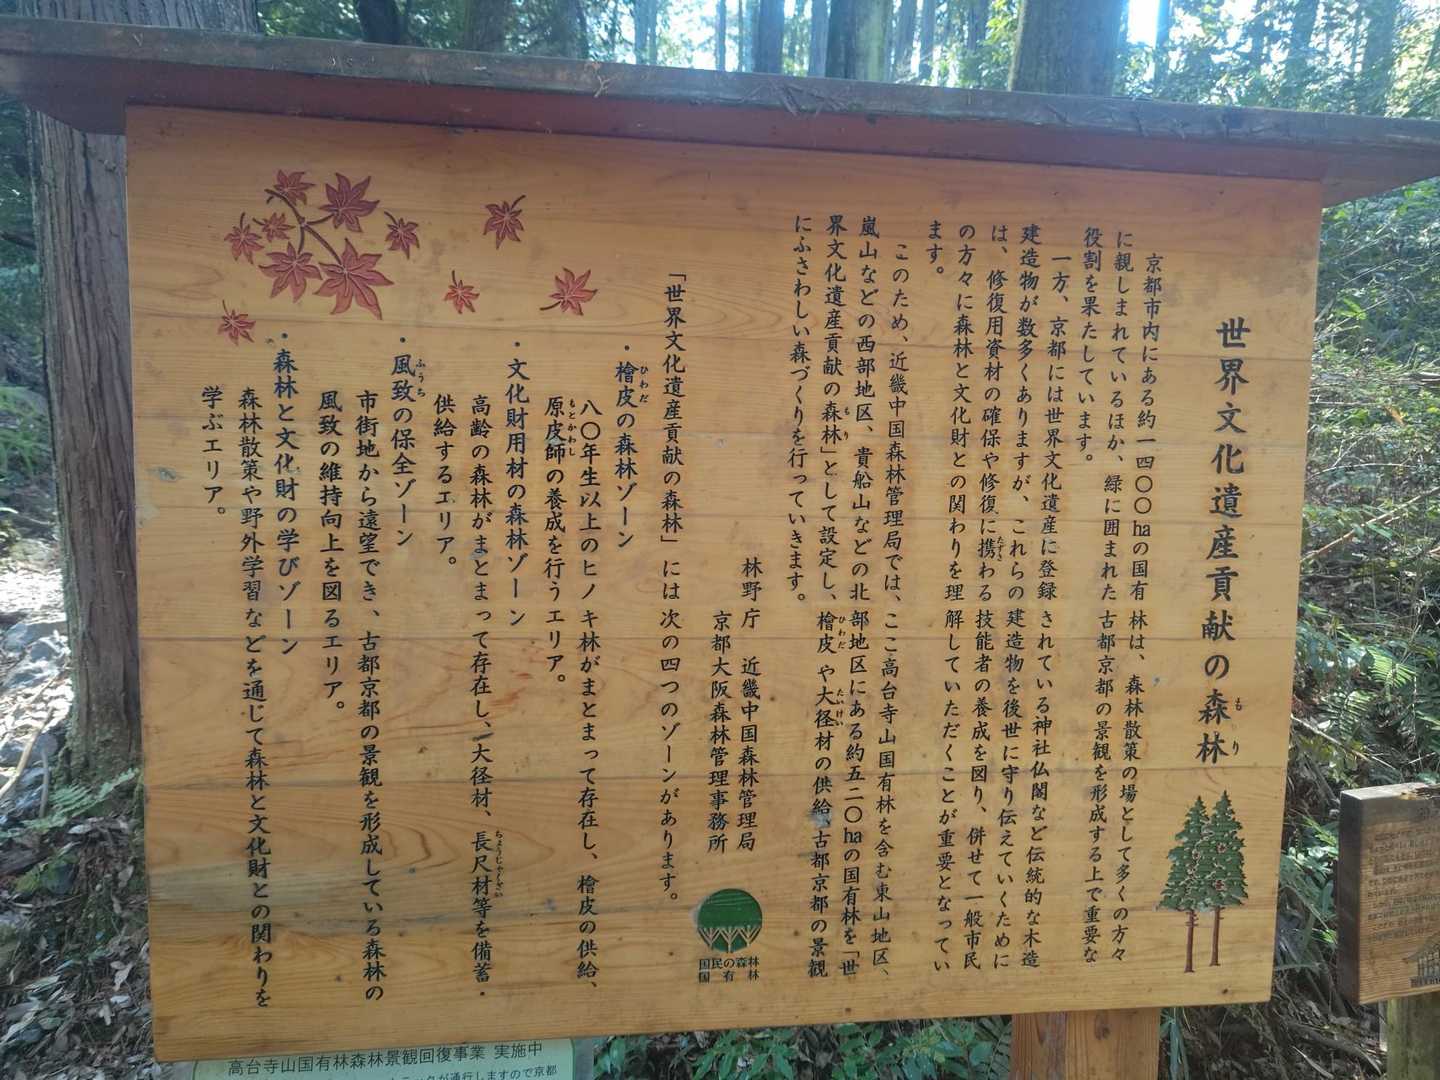 世界文化遺産貢献の森林
もり
京都市内にある約一四〇〇haの国有林は、森林散策の場として多くの方々
に親しまれているほか、緑に囲まれた古都京都の景観を形成する上で重要な
役割を果たしています。
一方、京都には世界文化遺産に登録されている神社仏閣など伝統的な木造
建造物が数多くありますが、これらの建造物を後世に守り伝えていくために
は、修復用資材の確保や修復に携わる技能者の養成を図り、併せて一般市民
たずさ
の方々に森林と文化財との関わりを理解していただくことが重要となってい
ます。
このため、近畿中国森林管理局では、ここ高台寺山国有林を含む東山地区、
嵐山などの西部地区、貴船山などの北部地区にある約五二〇haの国有林を「世
界文化遺産貢献の森林」として設定し、檜皮や大径材の供給、古都京都の景観
もり
ひわだ
たいけい
にふさわしい森づくりを行っていきます。
林野庁 近畿中国森林管理局
京都大阪森林管理事務所
国民の森林
国有林
「世界文化遺産貢献の森林」には次の四つのゾーンがあります。
・檜皮の森林ゾーン
ひわだ
八〇年生以上のヒノキ林がまとまって存在し、檜皮の供給、
原皮師の養成を行うエリア。
もとかわし
・文化財用材の森林ゾーン
高齢の森林がまとまって存在し、大径材、長尺材等を備蓄・
ちょうじゃくざい
供給するエリア。
・風致の保全ゾーン
ふうち
市街地から遠望でき、古都京都の景観を形成している森林の
風致の維持向上を図るエリア。
・森林と文化財の学びゾーン
森林散策や野外学習などを通じて森林と文化財との関わりを
学ぶエリア。
高台寺山国有林森林景観回復事業 実施中
が通行しますので京都